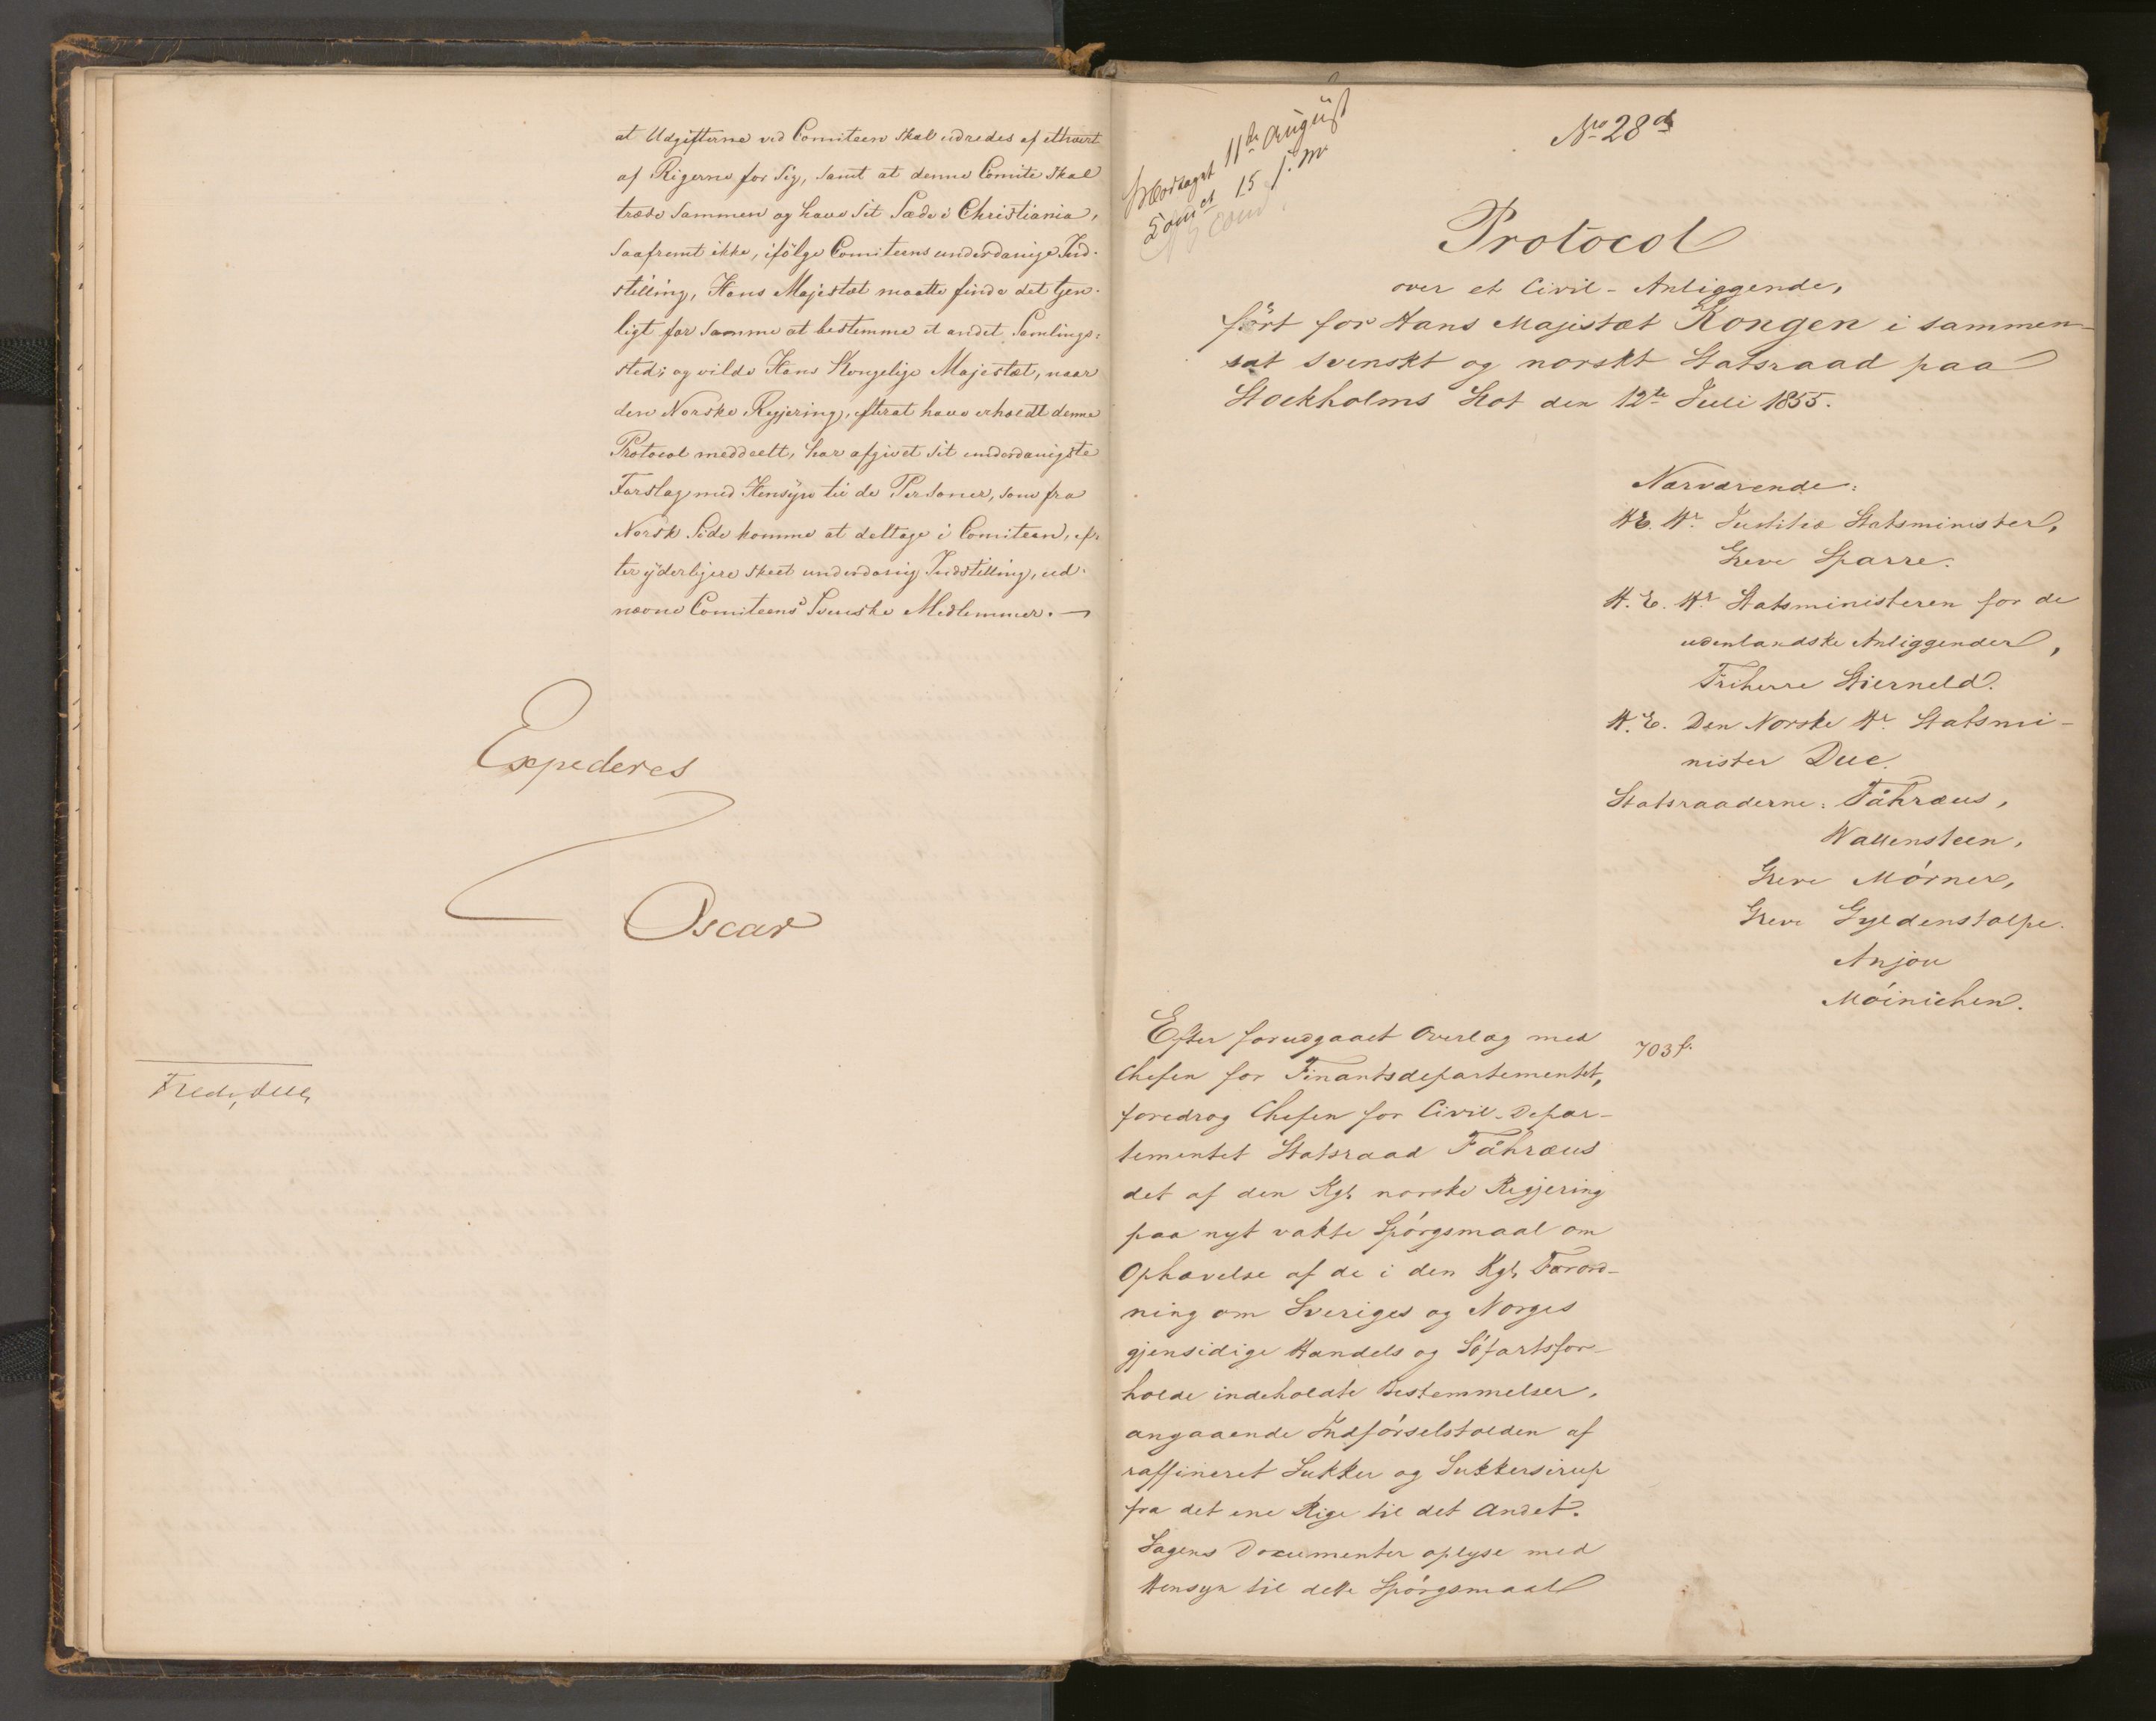 at Udgifterne ved Comiteen skal udredes af ethvert
af Rigerne for sig, samt at denne Comite skal
træde sammen og have sit Sæde i Christiania,
saafremt ikke, ifölge Comiteens underdanige Ind-
stilling, Hans Majestæt maatte finde det tjen-
ligt for samme at bestemme et andet Samlings-
sted; og vilde Hans Kongelige Majestæt, naar
den Norske Regjering, efterat have erholdt denne
Protocol meddeelt, har afgivet sit underdanigste
Forslag med Hensyn til de Personer, som fra
Norsk Side komme at deltage i Comiteen, ef-
ter yderligere skeet underdanig Indstilling, ud-
nævne Comiteens Svenske Medlemmer. —
Expederes
Oscar
Fredr. Due
Modtaget 11te August
15
No 28 d
Protocol
over et Civil-Anliggende,
fört for Hans Majestæt Kongen i sammen-
sat svenskt og norskt Statsraad paa
Stockholms Slot den 12te Juli 1855.
Nærværende:
H.E. Hr. Justitiæ Statsminister,
Greve Sparre.
H.E. Hr. Statsministeren for de
udenlandske Anliggender,
Friherre Stierneld.
H.E. Den Norske Hr. Statsmi-
nister Due.
Statsraaderne: Fåhræus,
Wallensteen,
Greve Mörner,
Greve Gyldenstolpe.
Anjou
Möinichen.
Efter forudgaaet Overlæg med
Chefen for Finantsdepartementet,
foredrog Chefen for Civil-Depar-
tementet Statsraad Fåhræus
det af den Kgl. norske Regjering
paa nyt vakte Spörgsmaal om
Ophævelse af de i den Kgl. Forord-
ning om Sveriges og Norges
gjensidige Handels og Söfartsfor-
holde indeholdte Bestemmelser,
angaaende Indförselstolden af
raffineret Sukker og Sukkersirup
fra det ene Rige til det Andet.
Sagens Documenter oplyse med
Hensyn til dette Spörgsmaal
703 f.